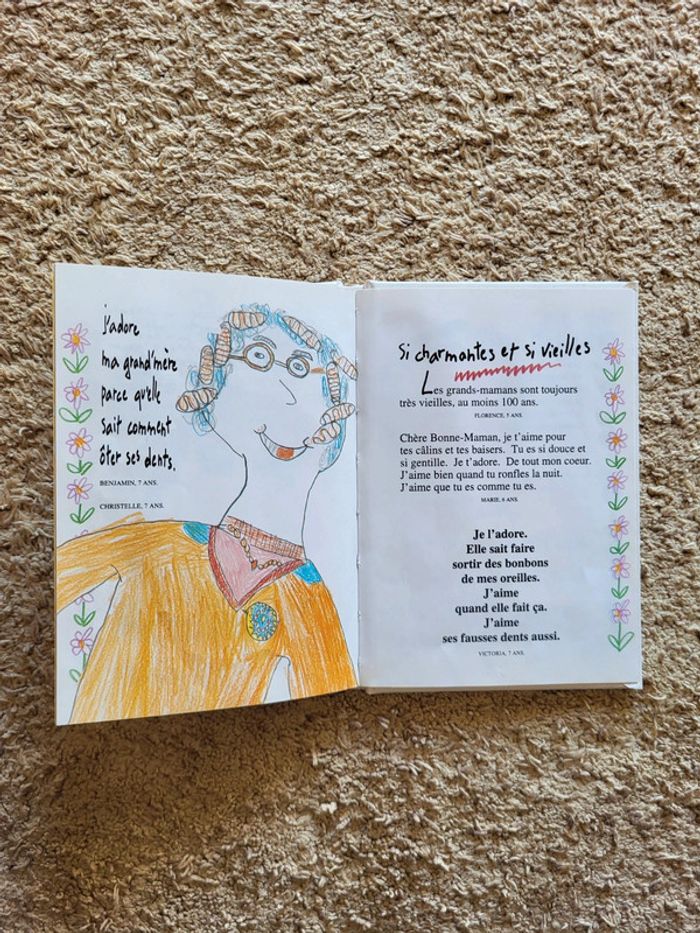 j'adore
ma grand'mère
parce qu'elle
sait comment
ôter ses dents.
BENJAMIN, 7 ANS.
CHRISTELLE, 7 ANS.
si charmantes et si vieilles
Les grands-mamans sont toujours
très vieilles, au moins 100 ans.
FLORENCE, 5 ANS.
Chère Bonne-Maman, je t'aime pour
tes câlins et tes baisers. Tu es si douce et
si gentille. Je t'adore. De tout mon coeur.
J'aime bien quand tu ronfles la nuit.
J'aime que tu es comme tu es.
MARIE, 6 ANS.
Je l'adore.
Elle sait faire
sortir des bonbons
de mes oreilles.
J'aime
quand elle fait ça.
J'aime
ses fausses dents aussi.
VICTORIA, 7 ANS.